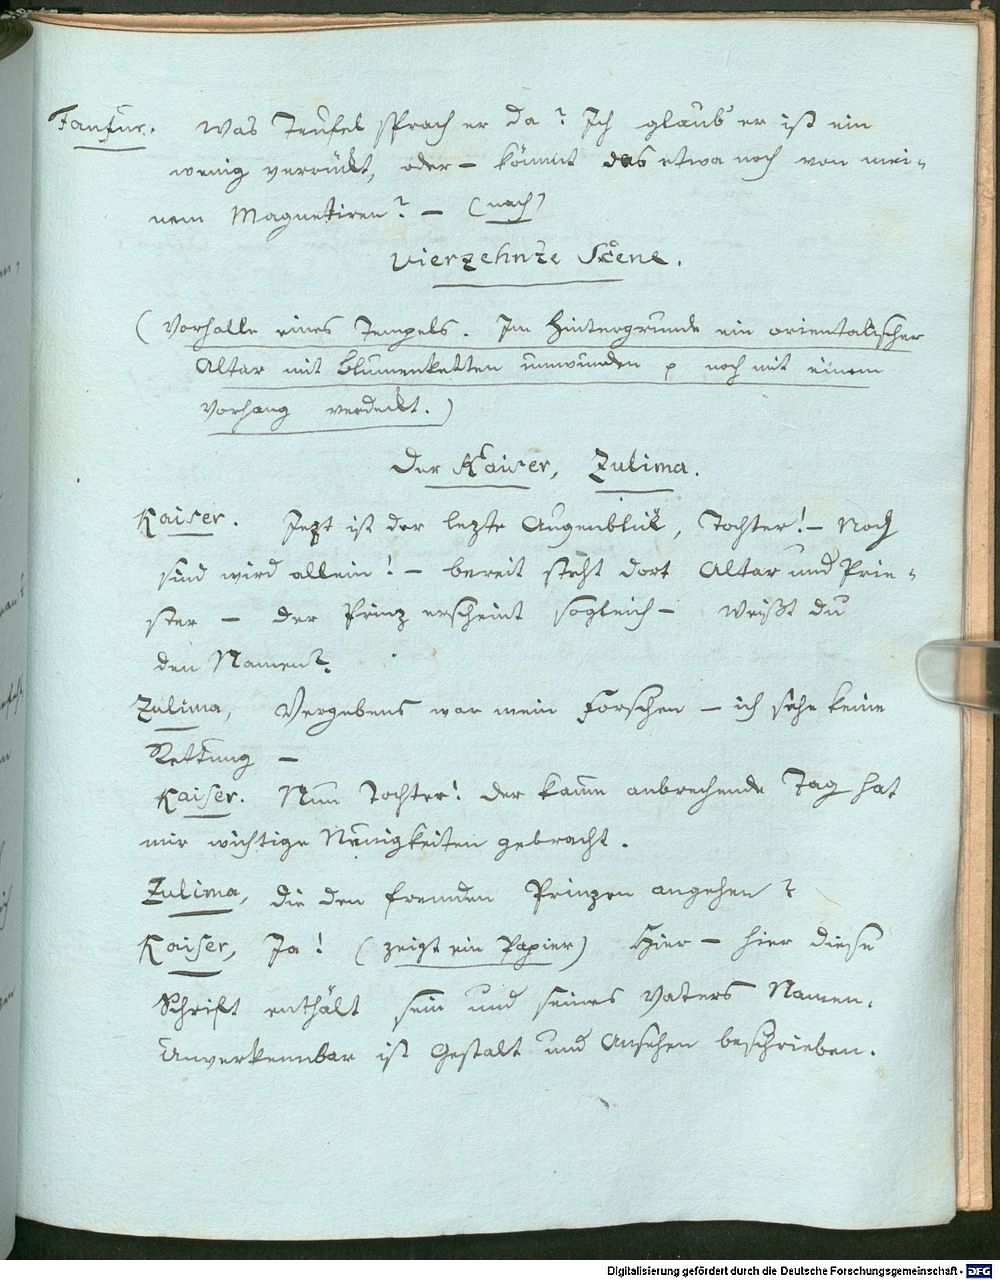 Fanfur. Was Teufel sprach er da? Ich glaub' er ist ein
wenig verrückt, oder – kömmt das etwa noch von mei-
nem Magnetiren? – (nach)
Vierzehnte Scene.
(Vorhalle eines Tempels. Im Hintergrunde ein orientalischer
Altar mit Blumenketten umwunden p noch mit einem
Vorhang verdeckt.)
Der Kaiser, Zulima.
Kaiser. Jezt ist der lezte Augenblick, Tochter! – Noch
sind wird allein! – bereit steht dort Altar und Prie-
ster – der Prinz erscheint sogleich – Weißt du
den Namen?
Zulima, Vergebens war mein Forschen – ich sehe keine
Rettung –
Kaiser. Nun Tochter! der kaum anbrechende Tag hat
mir wichtige Neuigkeiten gebracht.
Zulima, die den fremden Prinzen angehen?
Kaiser, Ja! (zeigt ein Papier) Hier – hier diese
Schrift enthält sein und seines Vaters Namen.
Unverkennbar ist Gestalt und Ansehen beschrieben.
Digitalisierung gefördert durch die Deutsche Forschungsgemeinschaft - DFG